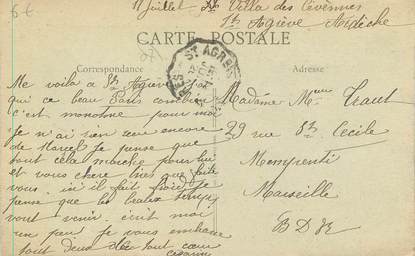 6€
11 Juillet Villa des Cévennes
St Agrève Ardèche
CARTE POSTALE
Correspondance
Adresse
ST AGREVE
Me voila a St Agreve
qui ce beau Pays combien
c'est monotone pour moi
je n'ai rien reçu encore
de Marcel je pense que
tout cela marche pour lui
et vous chere que faite
vous ici il fait froid je
pense que les beaux temps
vont venir. ecrit moi
un peu je vous embrasse
tout deux de tout cœur
Madame Mme Traut
29 rue Ste Cecile
Menpenti
Marseille
B D R